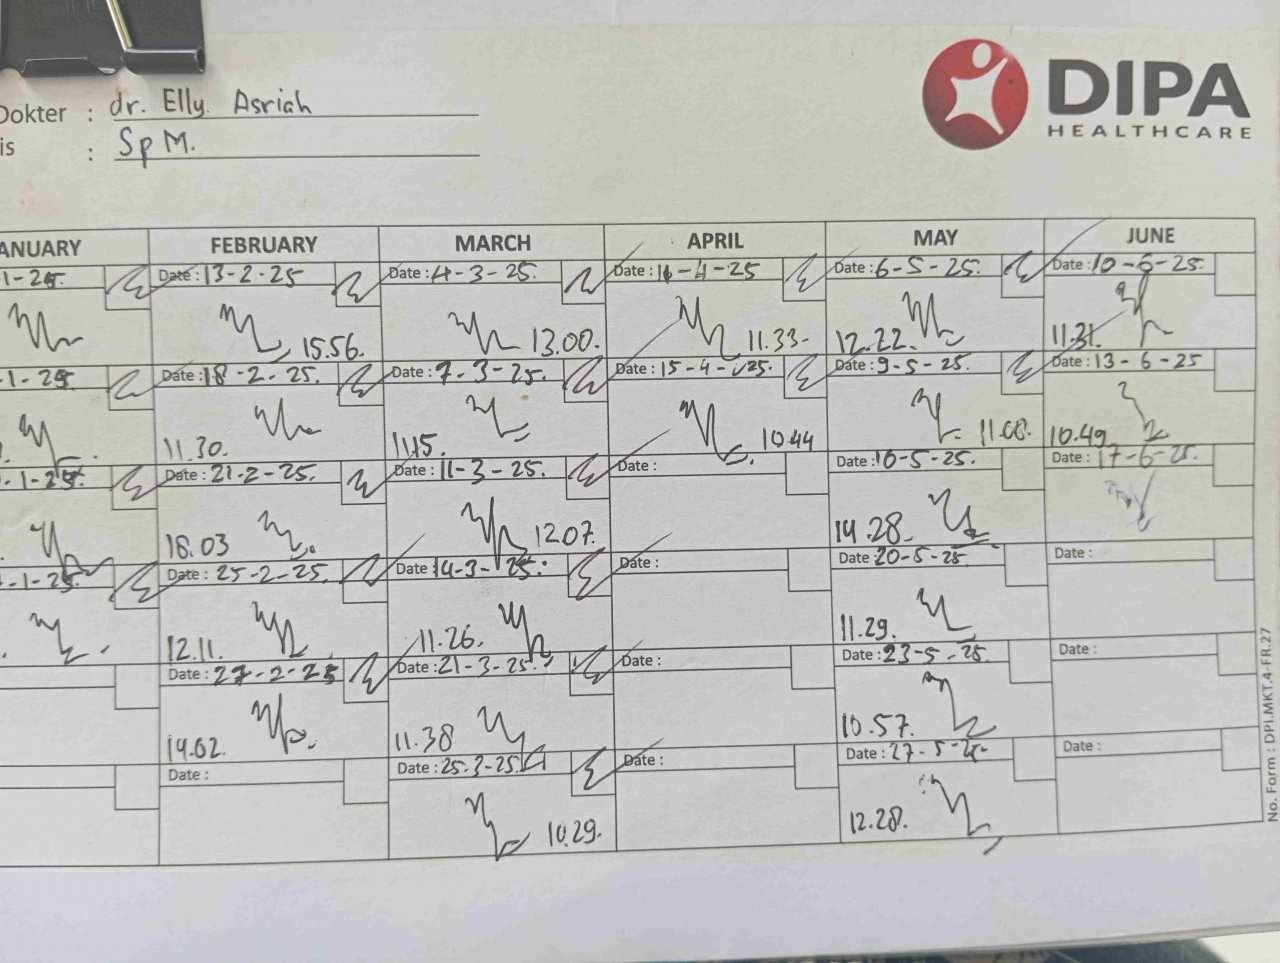 DIPA
HEALTHCARE
Dokter : dr. Elly Asriah
is : Sp M.
ANUARY FEBRUARY MARCH APRIL MAY JUNE
1-25. Date : 13-2-25 Date : 4-3-25. Date : 11-4-25 Date : 6-5-25. Date : 10-6-25.
15.56. 13.00. 11.33. 12.22. 11.31.
-1-25 Date : 18-2-25. Date : 7-3-25. Date : 15-4-25. Date : 9-5-25. Date : 13-6-25
11.30. 11.15. 10.44 11.08. 10.49
-1-25. Date : 21-2-25. Date : 11-3-25. Date : Date : 16-5-25. Date : 17-6-25.
16.03 12.07. 14.28
-1-25 Date : 25-2-25. Date : 14-3-25. Date : Date : 20-5-25. Date :
12.11. 11.26. 11.29.
Date : 27-2-25 Date : 21-3-25. Date : Date : 23-5-25. Date :
14.02. 11.38 10.57.
Date : Date : 25-3-25. Date : Date : 27-5-25 Date :
10.29. 12.28.
No. Form : DPI.MKT.4-FR.27